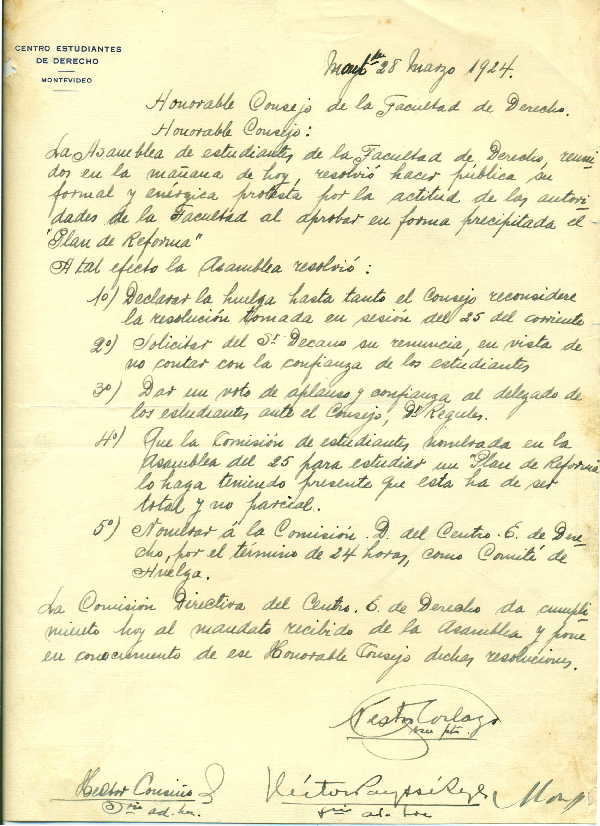 CENTRO ESTUDIANTES
DE DERECHO
MONTEVIDEO
28 Marzo 1924.
Honorable Consejo de la Facultad de Derecho.
Honorable Consejo:
La Asamblea de estudiantes de la Facultad de Derecho, reuni-
dos en la mañana de hoy, resolvió hacer pública su
formal y enérgica protesta por la actitud de las autori-
dades de la Facultad al aprobar en forma precipitada el
"Plan de Reforma"
A tal efecto la Asamblea resolvió:
1º) Declarar la huelga hasta tanto el Consejo reconsidere
la resolución tomada en sesión del 25 del corriente
2º) Solicitar del Sr. Decano su renuncia, en vista de
no contar con la confianza de los estudiantes
3º) Dar un voto de aplauso y confianza al delegado de
los estudiantes ante el Consejo, Dr. Regules.
4º) Que la Comisión de estudiantes nombrada en la
Asamblea del 25 para estudiar un "Plan de Reforma"
lo haga teniendo presente que esta ha de ser
total y no parcial.
5º) Nombrar á la Comisión. D. del Centro. E. de Dere-
cho, por el término de 24 horas, como Comité de
Huelga.
La Comisión Directiva del Centro. E. de Derecho da cumpli-
miento hoy al mandato recibido de la Asamblea y pone
en conocimiento de ese Honorable Consejo dichas resoluciones.
Héctor
ad. hoc.
Héctor
ad. hoc